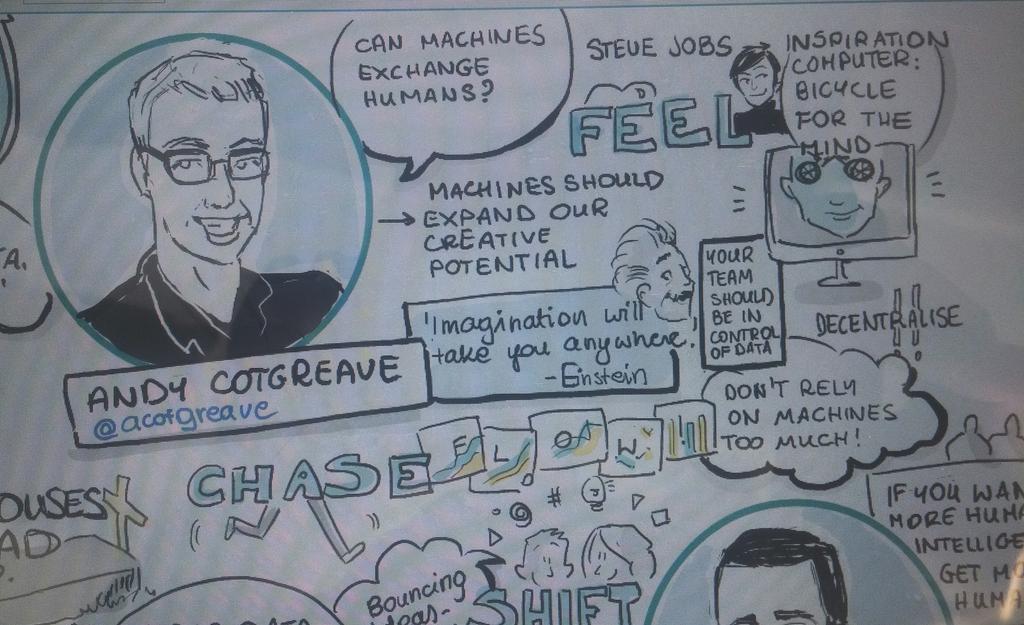 CAN MACHINES
EXCHANGE
HUMANS?
MACHINES SHOULD
EXPAND OUR
CREATIVE
POTENTIAL
STEVE JOBS
FEEL
INSPIRATION
COMPUTER:
BICYCLE
FOR THE
MIND
'Imagination will
take you anywhere,'
- Einstein
YOUR
TEAM
SHOULD
BE IN
CONTROL
OF DATA
DECENTRALISE
!!
DON'T RELY
ON MACHINES
TOO MUCH!
ANDY COTGREAVE
@acotgreave
CHASE FLOW
#
Bouncing
ideas-
SHIFT
IF YOU WAN
MORE HUMA
INTELLIGE
GET MO
HUMA
OUSES
AD
TA.